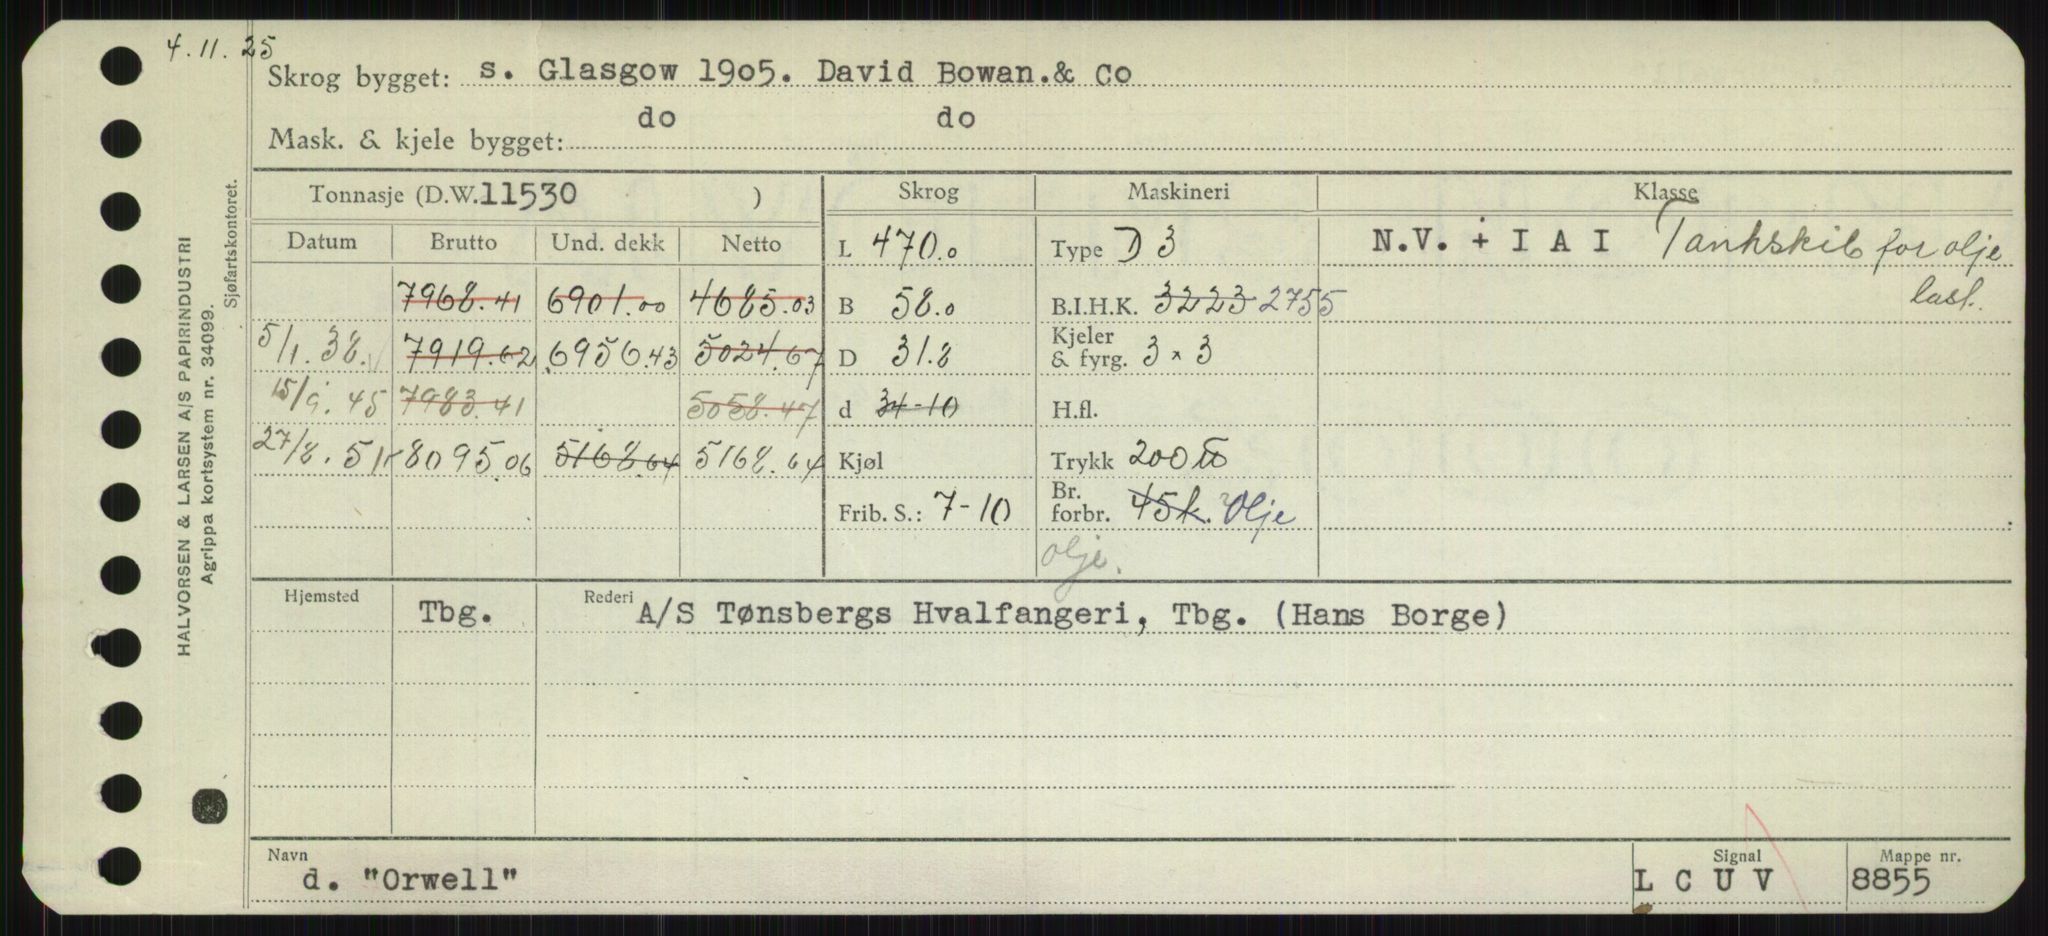 4.11.25
Skrog bygget: s. Glasgow 1905. David Bowan.& Co
do do
Mask. & kjele bygget:
Tonnasje (D.W. 11530 ) Skrog Maskineri Klasse
Datum Brutto Und. dekk Netto
L 470.0 Type D 3 N.V. + I A I Tankskib for olje
last.
7968.41 6901.00 4685.03 B 58.0 B.I.H.K. 3223 2755
5/1.38. 7919.62 6956.43 5024.67 D 31.8 Kjeler & fyrg. 3 x 3
15/9.45 7983.41 5058.47 d 34-10 H.fl.
27/8.51 8095.06 5168.64 5168.64 Kjøl Trykk 200
Frib. S.: 7-10 Br. forbr. 45 k. Olje
olje.
Hjemsted Rederi
Tbg. A/S Tønsbergs Hvalfangeri, Tbg. (Hans Borge)
Navn Signal Mappe nr.
d. "Orwell" L C U V 8855
HALVORSEN & LARSEN A/S PAPIRINDUSTRI
Agrippa kortsystem nr. 34099.
Sjøfartskontoret.